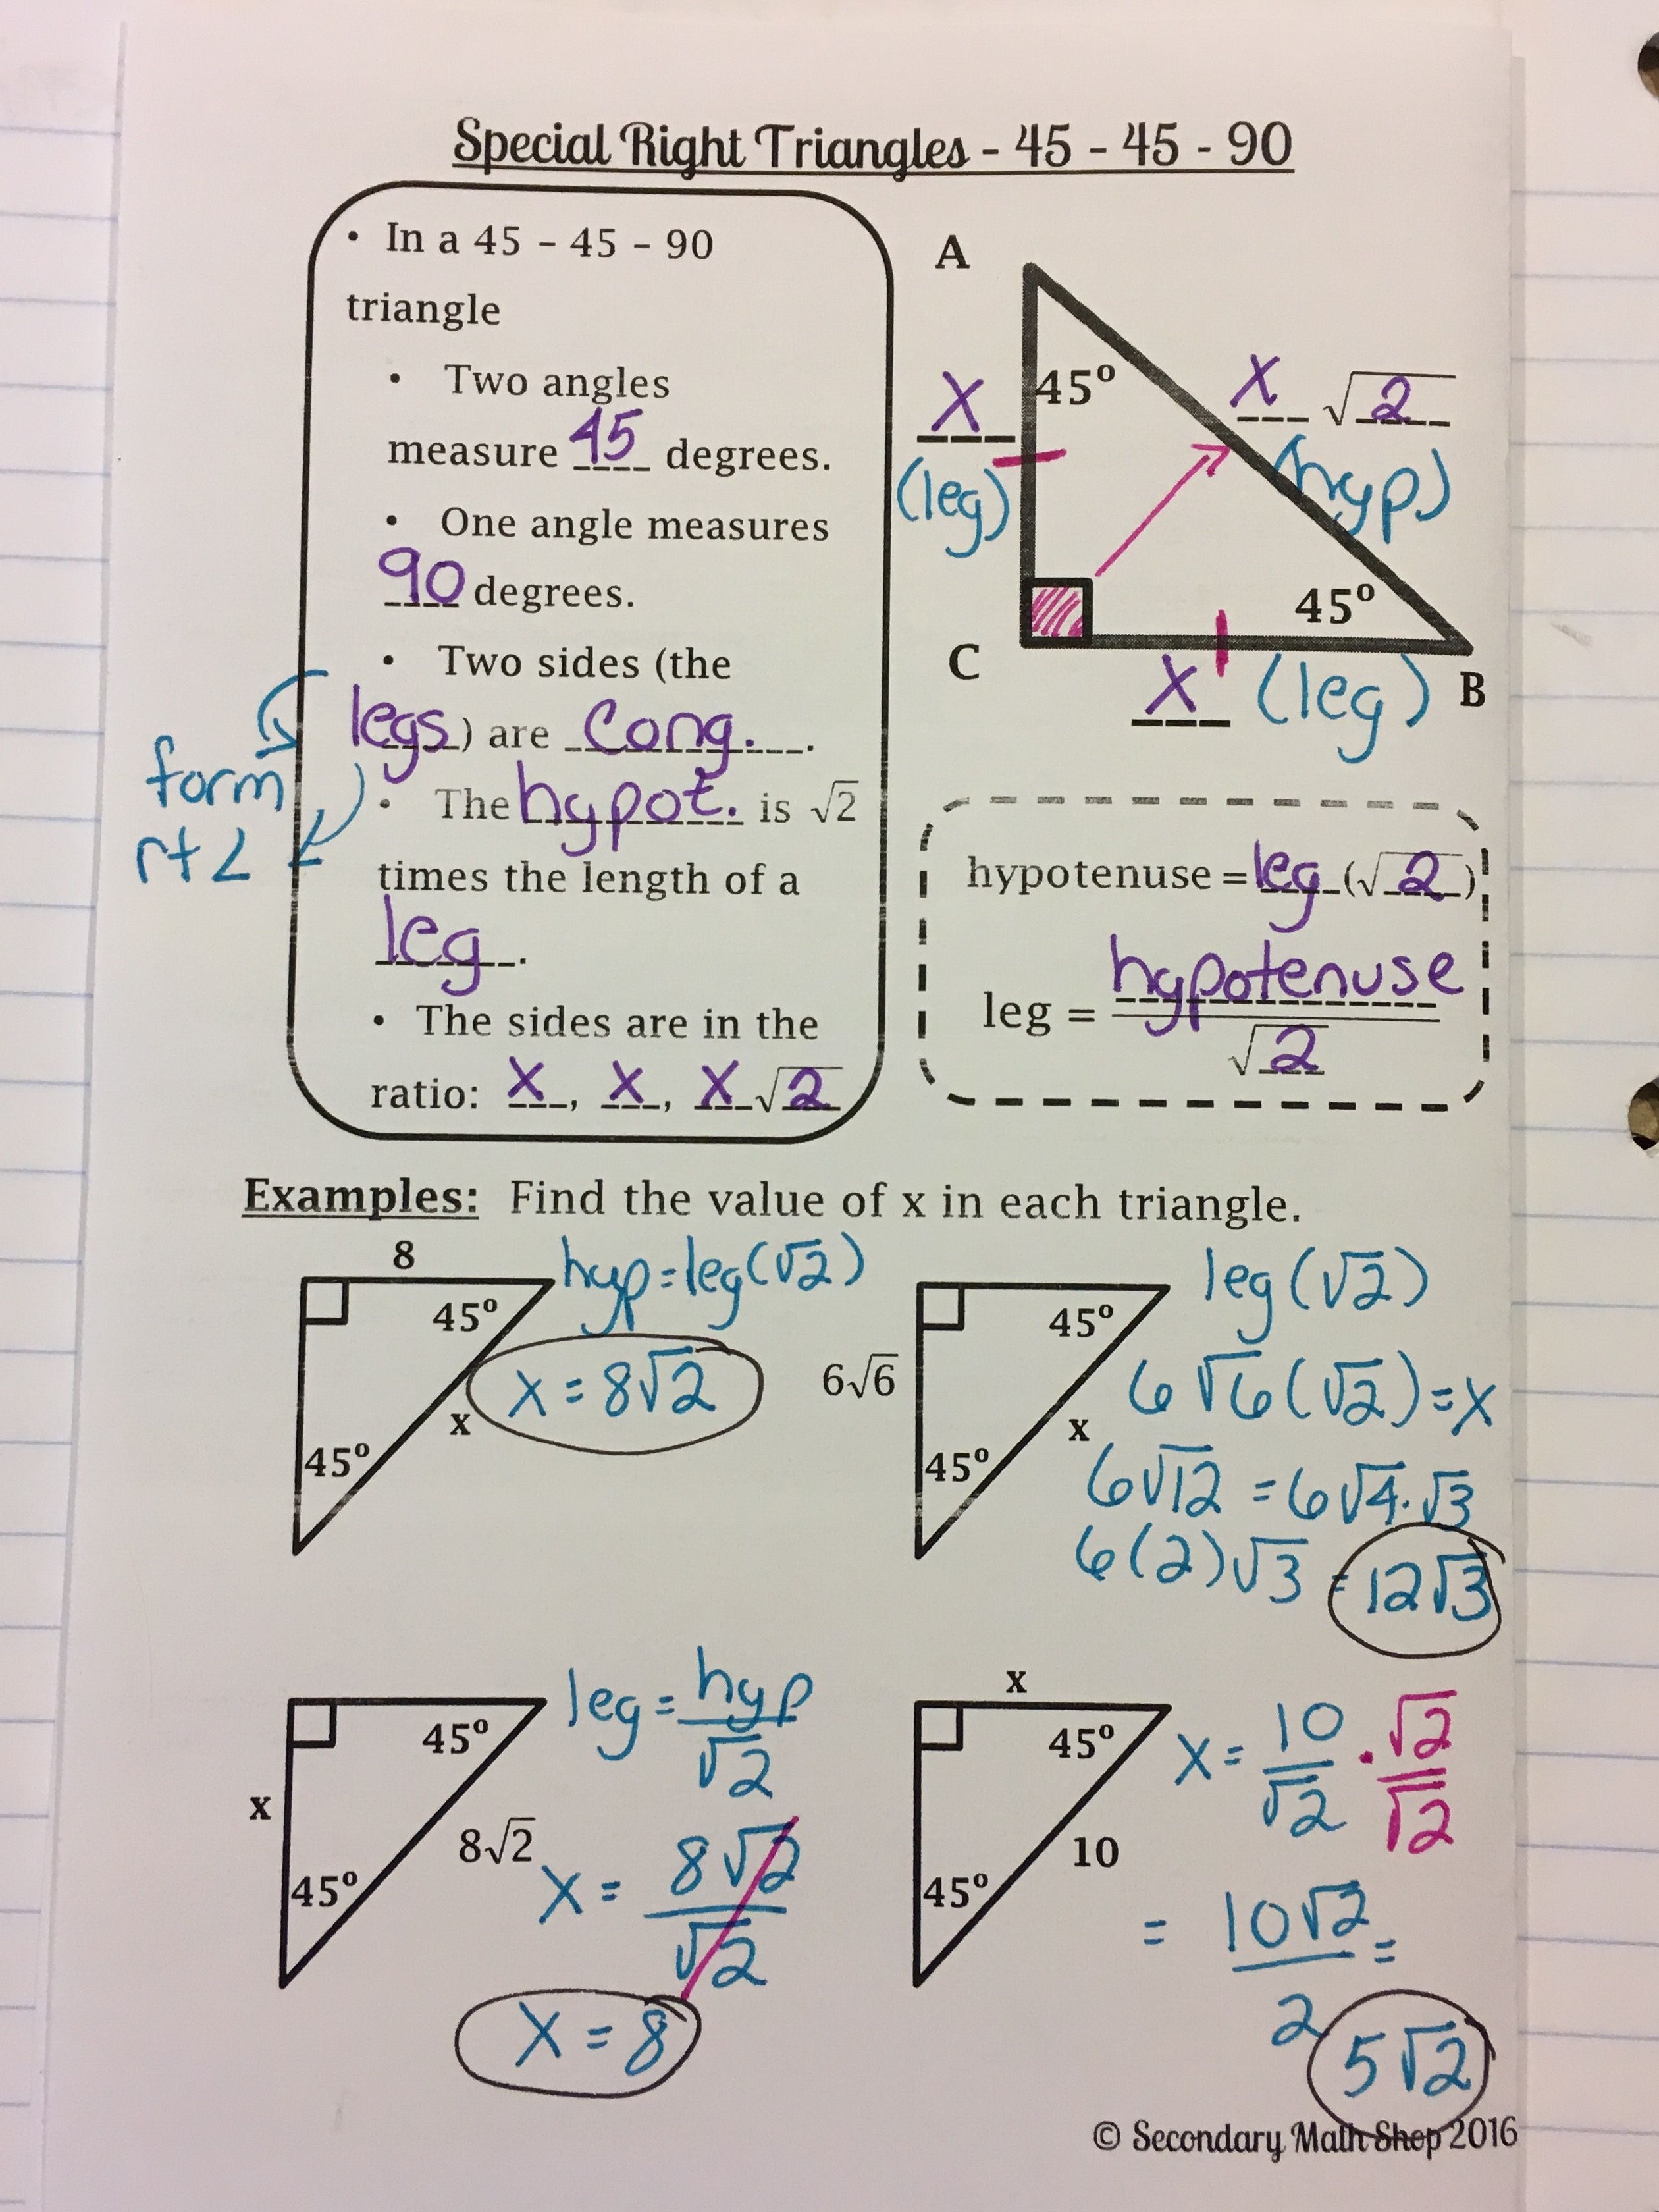 Special Right Triangles - 45 - 45 - 90
• In a 45 – 45 – 90
triangle
• Two angles
measure 45 degrees.
• One angle measures
90 degrees.
• Two sides (the
legs) are cong.
form
rt∠
• The hypot. is √2
times the length of a
leg.
• The sides are in the
ratio: x, x, x√2
A
45º
x
(leg)
x √2
(hyp)
45º
C
x (leg)
B
hypotenuse = leg (√2)
leg = hypotenuse
√2
Examples: Find the value of x in each triangle.
8
45º
45º
x
hyp = leg(√2)
x = 8√2
6√6
45º
45º
x
leg (√2)
6√6(√2) = x
6√12 = 6√4·√3
6(2)√3 = 12√3
x
45º
45º
8√2
leg = hyp
√2
x = 8√2
√2
x = 8
x
45º
45º
10
x = 10 · √2
√2 √2
= 10√2 =
2
5√2
© Secondary Math Shop 2016